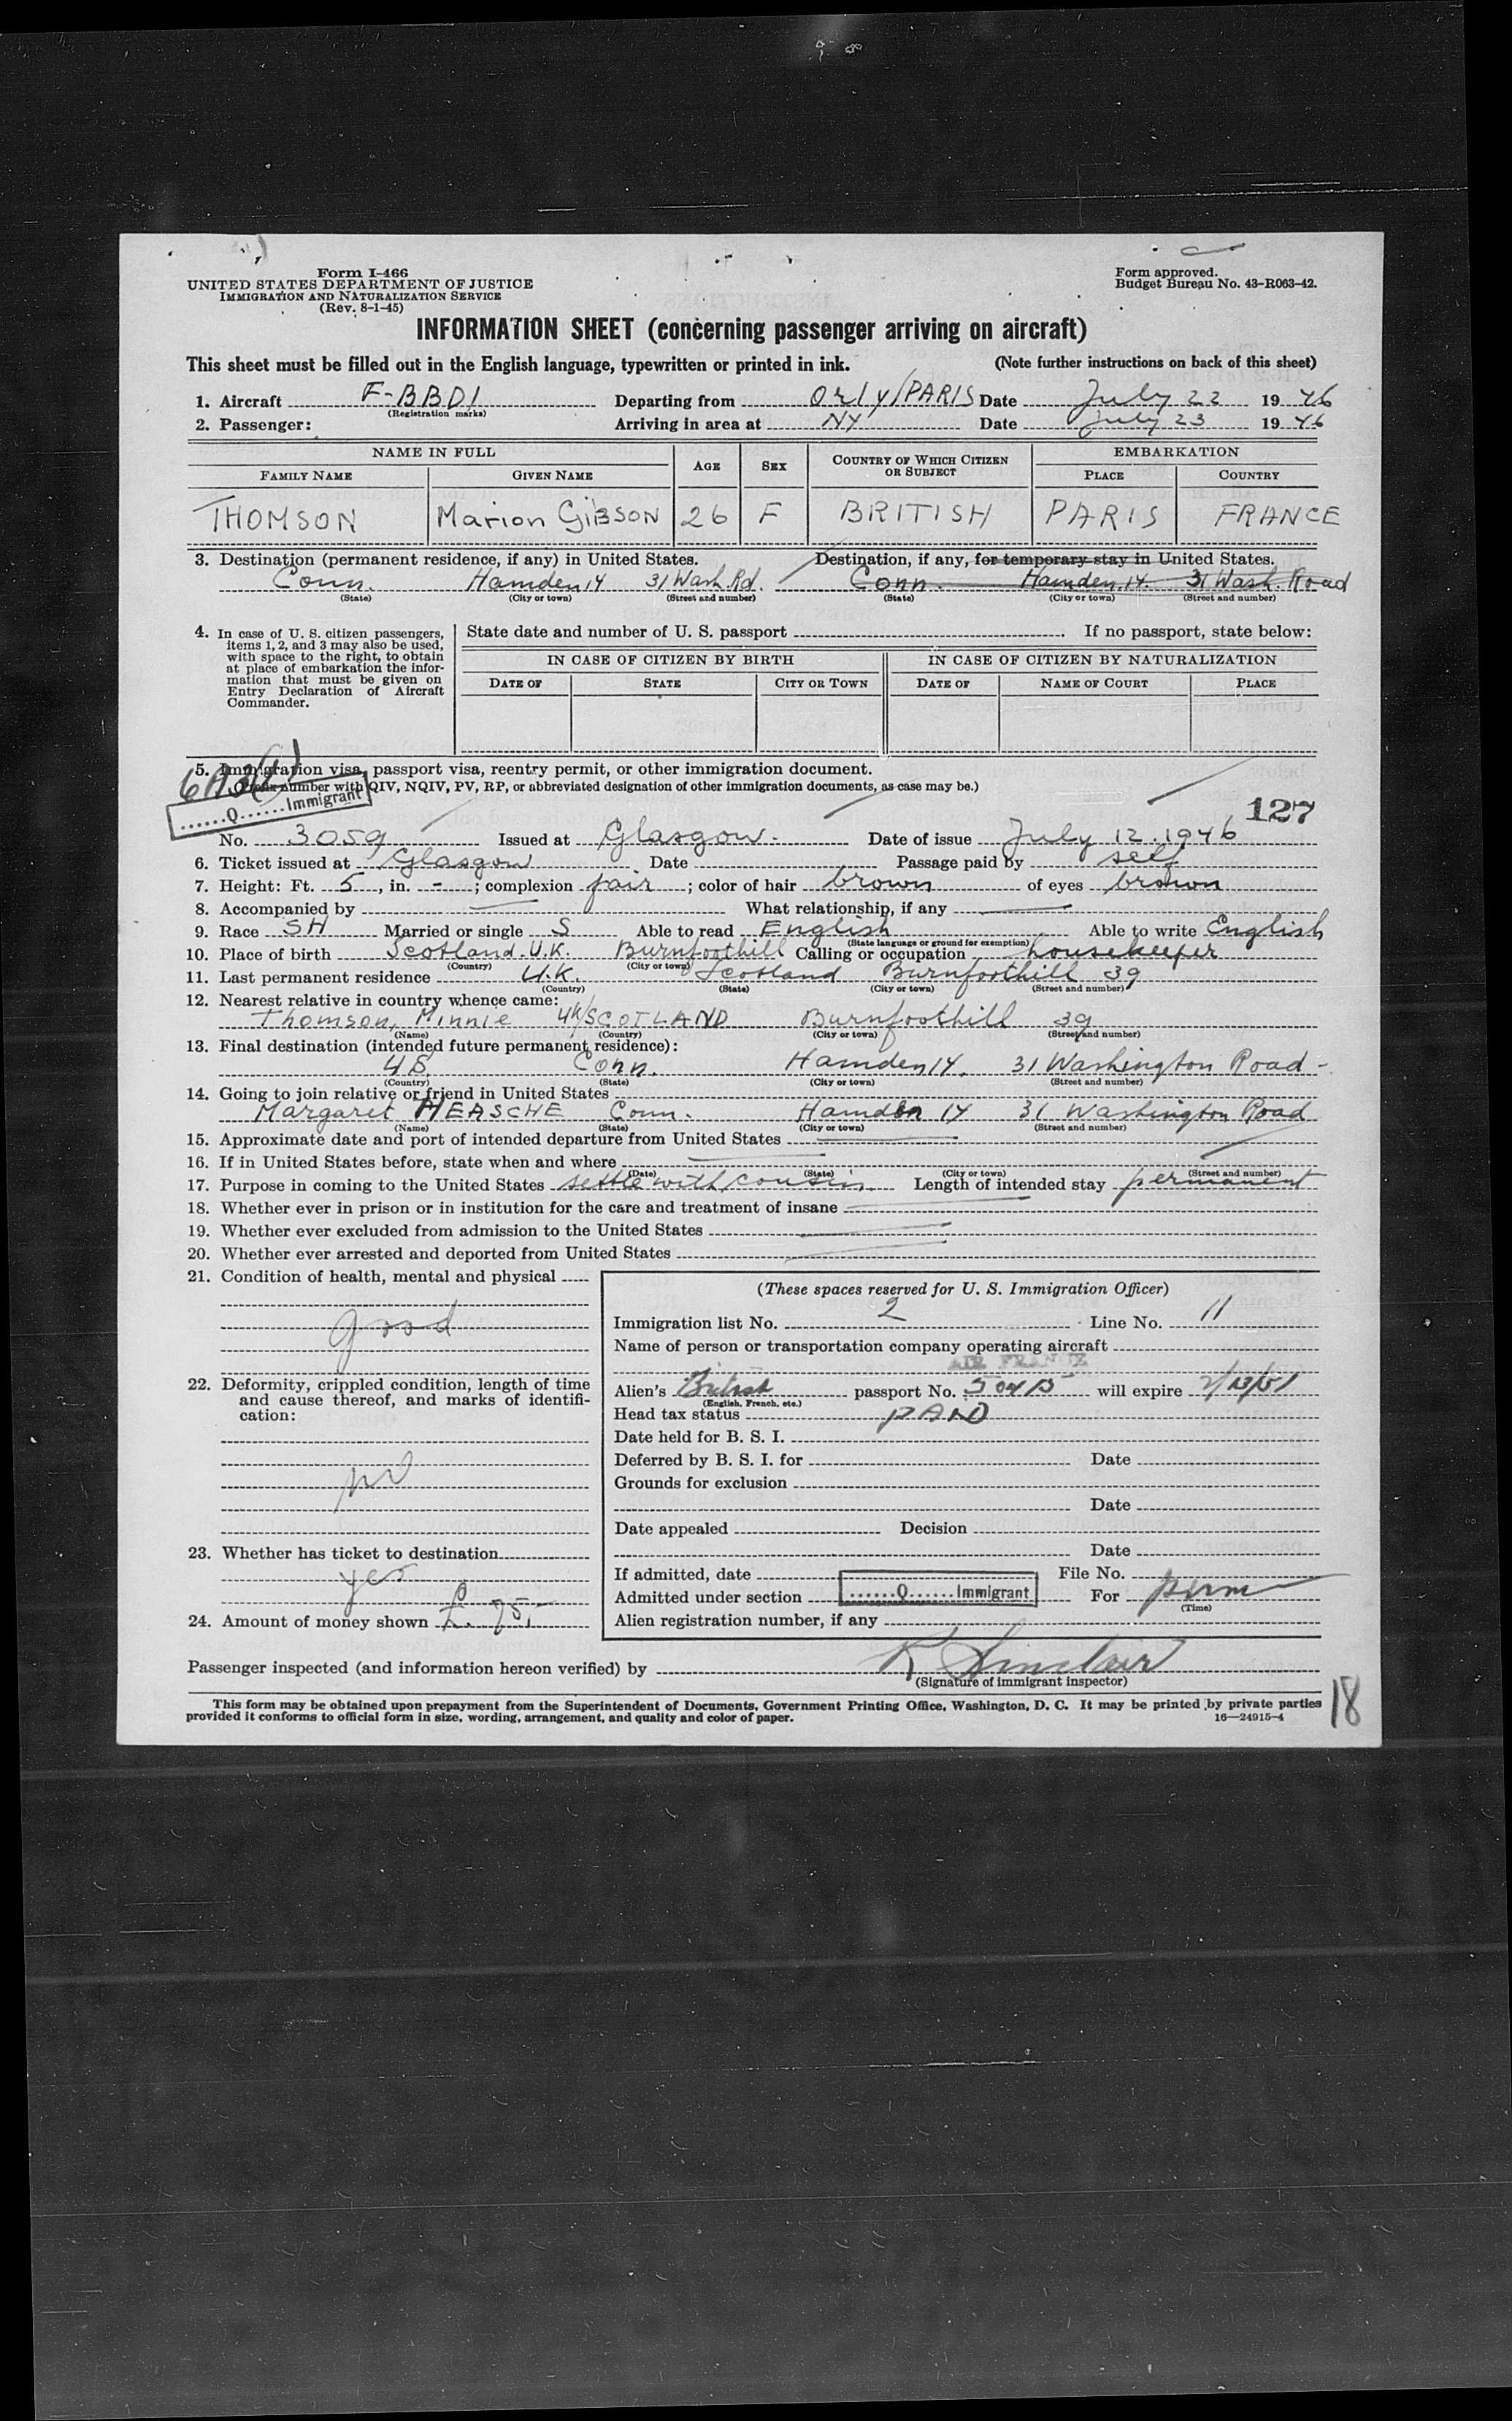 Form I-466
UNITED STATES DEPARTMENT OF JUSTICE
IMMIGRATION AND NATURALIZATION SERVICE
(Rev. 8-1-45)
Form approved.
Budget Bureau No. 43-R063-42.
INFORMATION SHEET (concerning passenger arriving on aircraft)
This sheet must be filled out in the English language, typewritten or printed in ink. (Note further instructions on back of this sheet)
1. Aircraft F-BBDI Departing from Orly/PARIS Date July 22 1946
(Registration marks)
2. Passenger: Arriving in area at NY Date July 23 1946
NAME IN FULL AGE SEX COUNTRY OF WHICH CITIZEN OR SUBJECT EMBARKATION
FAMILY NAME GIVEN NAME PLACE COUNTRY
THOMSON Marion GIBSON 26 F BRITISH PARIS FRANCE
3. Destination (permanent residence, if any) in United States. Destination, if any, for temporary stay in United States.
Conn. Hamden 14 31 Wash. Rd. Conn. Hamden, 14. 31 Wash. Road
(State) (City or town) (Street and number) (State) (City or town) (Street and number)
4. In case of U. S. citizen passengers,
items 1, 2, and 3 may also be used,
with space to the right, to obtain
at place of embarkation the infor-
mation that must be given on
Entry Declaration of Aircraft
Commander.
State date and number of U. S. passport If no passport, state below:
IN CASE OF CITIZEN BY BIRTH IN CASE OF CITIZEN BY NATURALIZATION
DATE OF STATE CITY OR TOWN DATE OF NAME OF COURT PLACE
5. Immigration visa, passport visa, reentry permit, or other immigration document.
(Prefix number with QIV, NQIV, PV, RP, or abbreviated designation of other immigration documents, as case may be.)
......Q......Immigrant
127
No. 3059 Issued at Glasgow. Date of issue July 12. 1946
6. Ticket issued at Glasgow Date Passage paid by self
7. Height: Ft. 5, in. -; complexion fair; color of hair brown of eyes brown
8. Accompanied by What relationship, if any
9. Race SH Married or single S Able to read English Able to write English
(State language or ground for exemption)
10. Place of birth Scotland. U.K. Burnfoothill Calling or occupation housekeeper
(Country) (City or town)
11. Last permanent residence U.K. Scotland Burnfoothill 39
(Country) (State) (City or town) (Street and number)
12. Nearest relative in country whence came:
Thomson, Minnie UK/SCOTLAND Burnfoothill 39
(Name) (Country) (City or town) (Street and number)
13. Final destination (intended future permanent residence):
US Conn. Hamden 14, 31 Washington Road -
(Country) (State) (City or town) (Street and number)
14. Going to join relative or friend in United States
Margaret HEASCHE Conn. Hamden 14 31 Washington Road
(Name) (State) (City or town) (Street and number)
15. Approximate date and port of intended departure from United States
16. If in United States before, state when and where
(Date) (State) (City or town) (Street and number)
17. Purpose in coming to the United States settle with cousin Length of intended stay permanent
18. Whether ever in prison or in institution for the care and treatment of insane
19. Whether ever excluded from admission to the United States
20. Whether ever arrested and deported from United States
21. Condition of health, mental and physical
good
22. Deformity, crippled condition, length of time
and cause thereof, and marks of identifi-
cation:
23. Whether has ticket to destination
yes
24. Amount of money shown £. 75,-
(These spaces reserved for U. S. Immigration Officer)
Immigration list No. 2 Line No. 11
Name of person or transportation company operating aircraft
AIR FRANCE
Alien's British passport No. will expire 2/13/51
(English, French, etc.)
Head tax status PAID
Date held for B. S. I.
Deferred by B. S. I. for Date
Grounds for exclusion
Date
Date appealed Decision
Date
If admitted, date File No.
Admitted under section ......Q......Immigrant For perm
(Time)
Alien registration number, if any
Passenger inspected (and information hereon verified) by K Sinclair
(Signature of immigrant inspector)
This form may be obtained upon prepayment from the Superintendent of Documents, Government Printing Office, Washington, D. C. It may be printed by private parties
provided it conforms to official form in size, wording, arrangement, and quality and color of paper. 16—24915-4
18